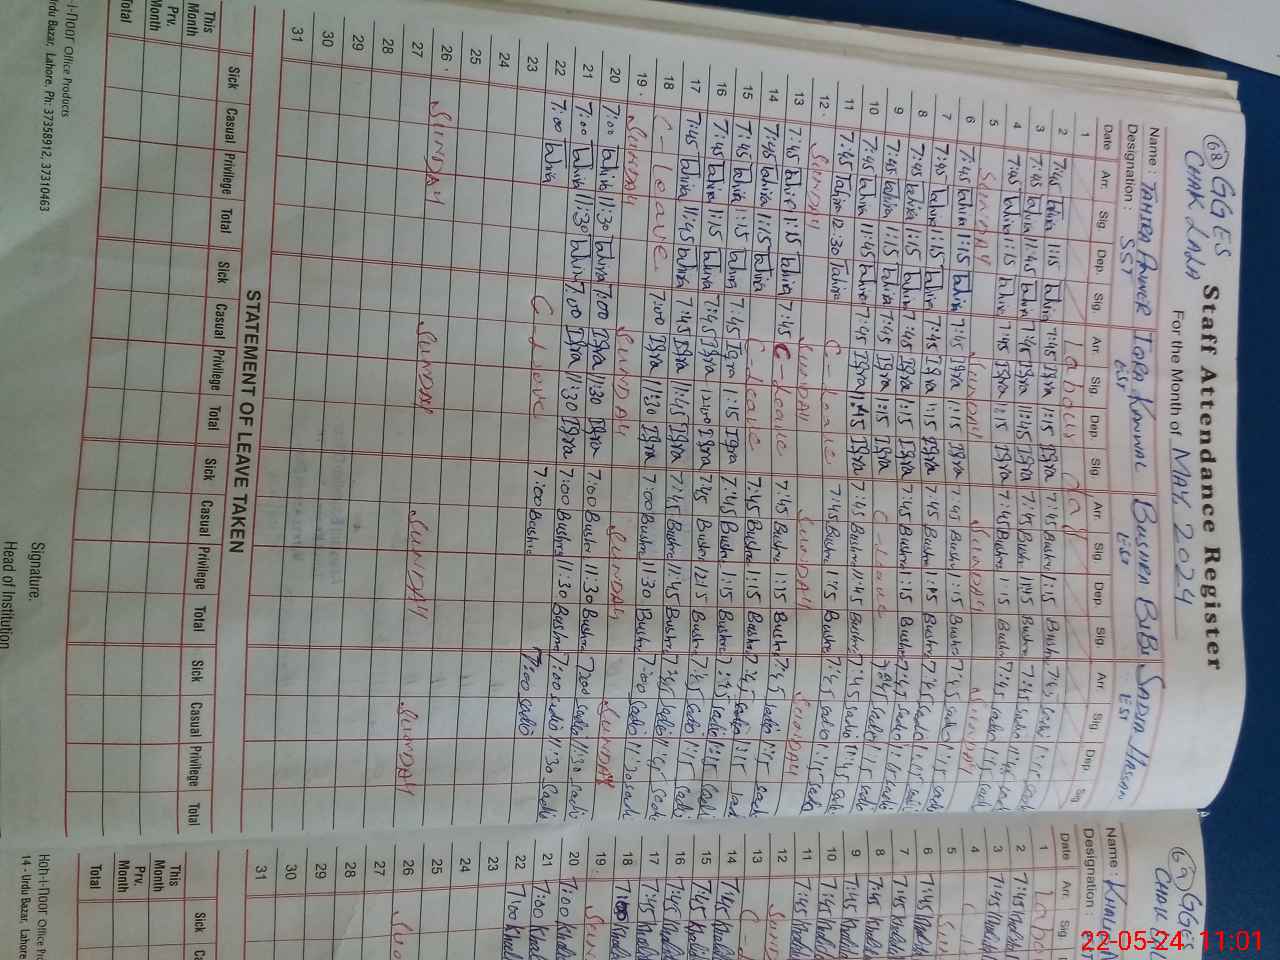 68 GGES
CHAK LALA
Staff Attendance Register
For the Month of MAY 2024
Name : TAHIRA PARVEER IQRA KANWAL BUSHRA BiBi SADIA HASSAN
Designation : SST EST EST EST
Date Arr. Sig. Dep. Sig. Arr. Sig. Dep. Sig. Arr. Sig. Dep. Sig. Arr. Sig. Dep. Sig.
1 Labour Day
2 7:45 Tahira 1:15 Tahira 7:45 Iqra 1:15 Iqra 7:45 Bushra 1:15 Bushra
3 7:45 Tahira 11:45 Tahira 7:45 Iqra 11:45 Iqra 7:45 Bushra 11:45 Bushra 7:45
4 7:45 Tahira 1:15 Tahira 7:45 Iqra 1:15 Iqra 7:45 Bushra 1:15 Bushra 7:45
5 SUNDAY SUNDAY SUNDAY SUNDAY
6 7:45 Tahira 1:15 Tahira 7:45 Iqra 1:15 Iqra 7:45 Bushra 1:15 Bushra 7:45 Sadia 1:15
7 7:45 Tahira 1:15 Tahira 7:45 Iqra 1:15 Iqra 7:45 Bushra 1:15 Bushra 7:45 Sadia 1:15
8 7:45 Tahira 1:15 Tahira 7:45 Iqra 1:15 Iqra 7:45 Bushra 1:15 Bushra 7:45 Sadia 1:15
9 7:45 Tahira 1:15 Tahira 7:45 Iqra 1:15 Iqra C-Leave 7:45 Sadia 1:15
10 7:45 Tahira 11:45 Tahira 7:45 Iqra 11:45 Iqra 7:45 Bushra 11:45 Bushra 7:45 Sadia
11 7:45 Tahira 12:30 Tahira C-Leave 7:45 Bushra 1:15 Bushra 7:45 Sadia 1:15
12 SUNDAY SUNDAY SUNDAY SUNDAY
13 7:45 Tahira 1:15 Tahira 7:45 C-Leave 7:45 Bushra 1:15 Bushra 7:45 Sadia 1:15
14 7:45 Tahira 1:15 Tahira C-Leave 7:45 Bushra 1:15 Bushra 7:45 Sadia 1:15
15 7:45 Tahira 1:15 Tahira 7:45 Iqra 1:15 Iqra 7:45 Bushra 1:15 Bushra 7:45 Sadia 1:15
16 7:45 Tahira 1:15 Tahira 7:45 Iqra 12:00 Iqra 7:45 Bushra 12:15 Bushra 7:45 Sadia 1:15
17 7:45 Tahira 11:45 Tahira 7:45 Iqra 11:45 Iqra 7:45 Bushra 11:45 Bushra 7:45 Sadia 11:45
18 C-Leave 7:00 Iqra 11:30 Iqra 7:00 Bushra 11:30 Bushra 7:00 Sadia 11:30 Sadia
19 SUNDAY SUNDAY SUNDAY SUNDAY
20 7:00 Tahira 11:30 Tahira 7:00 Iqra 11:30 Iqra 7:00 Bushra 11:30 Bushra 7:00 Sadia 11:30 Sadia
21 7:00 Tahira 11:30 Tahira 7:00 Iqra 11:30 Iqra 7:00 Bushra 11:30 Bushra 7:00 Sadia 11:30 Sadia
22 7:00 Tahira C-Leave 7:00 Bushra 7:00 Sadia
23
24
25
26 SUNDAY SUNDAY SUNDAY SUNDAY
27
28
29
30
31
STATEMENT OF LEAVE TAKEN
Sick Casual Privilege Total Sick Casual Privilege Total Sick Casual Privilege Total Sick Casual Privilege Total
This Month
Prv. Month
Total
Signature.
Head of Institution
Office Products
Urdu Bazar, Lahore. Ph: 37358912, 37310463
GGES
CHAK
Name :
Designation :
Date Arr. Sig
1
2 7:45
3 7:45
4
5
6 7:45
7 7:45
8 7:45
9 7:45
10 7:45
11 7:45
12
13
14 7:45
15 7:45
16 7:45
17 7:45
18 7:00
19
20 7:00
21 7:00
22 7:00
23
24
25
26
27
28
29
30
31
Sick
This Month
Prv. Month
Total
14 - Urdu Bazar, Lahore
22-05-24 11:01